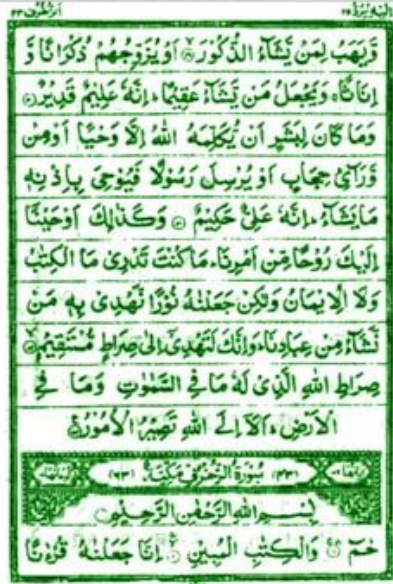 اليه يرد ٢٥ الزخرف ٤٣
وَّيَهَبُ لِمَنْ يَّشَآءُ الذُّكُوْرَ ۙ اَوْ يُزَوِّجُهُمْ ذُكْرَانًا وَّ
اِنَاثًا ۚ وَيَجْعَلُ مَنْ يَّشَآءُ عَقِيْمًا ؕ اِنَّهٗ عَلِيْمٌ قَدِيْرٌ
وَمَا كَانَ لِبَشَرٍ اَنْ يُّكَلِّمَهُ اللّٰهُ اِلَّا وَحْيًا اَوْ مِنْ
وَّرَآئِ حِجَابٍ اَوْ يُرْسِلَ رَسُوْلًا فَيُوْحِىَ بِاِذْنِهٖ
مَا يَشَآءُ ؕ اِنَّهٗ عَلِىٌّ حَكِيْمٌ وَكَذٰلِكَ اَوْحَيْنَآ
اِلَيْكَ رُوْحًا مِّنْ اَمْرِنَا ؕ مَا كُنْتَ تَدْرِىْ مَا الْكِتٰبُ
وَلَا الْاِيْمَانُ وَلٰكِنْ جَعَلْنٰهُ نُوْرًا نَّهْدِىْ بِهٖ مَنْ
نَّشَآءُ مِنْ عِبَادِنَا ؕ وَاِنَّكَ لَتَهْدِىْٓ اِلٰى صِرَاطٍ مُّسْتَقِيْمٍ
صِرَاطِ اللّٰهِ الَّذِىْ لَهٗ مَا فِى السَّمٰوٰتِ وَمَا فِى
الْاَرْضِ ؕ اَلَآ اِلَى اللّٰهِ تَصِيْرُ الْاُمُوْرُ
(٤٣) سُوْرَةُ الزُّخْرُفِ مَكِّيَّةٌ (٦٣)
بِسْمِ اللّٰهِ الرَّحْمٰنِ الرَّحِيْمِ
حٰمٓ وَالْكِتٰبِ الْمُبِيْنِ اِنَّا جَعَلْنٰهُ قُرْءٰنًا